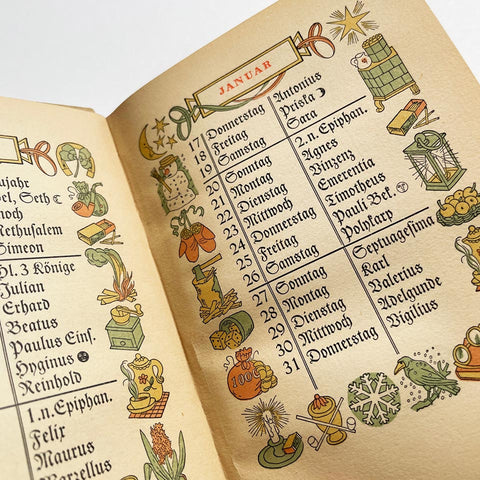 ujahr
el, Seth ☾
noch
Methusalem
Simeon
Hl. 3 Könige
Julian
Erhard
Beatus
Paulus Eins.
Hyginus
Reinhold
1. n. Epiphan.
Felix
Maurus
Marzellus
JANUAR
17 Donnerstag Antonius
18 Freitag Priska ☽
19 Samstag Sara
20 Sonntag 2. n. Epiphan.
21 Montag Agnes
22 Dienstag Vinzenz
23 Mittwoch Emerentia
24 Donnerstag Timotheus
25 Freitag Pauli Bek.
26 Samstag Polykarp
27 Sonntag Septuagesima
28 Montag Karl
29 Dienstag Valerius
30 Mittwoch Adelgunde
31 Donnerstag Vigilius